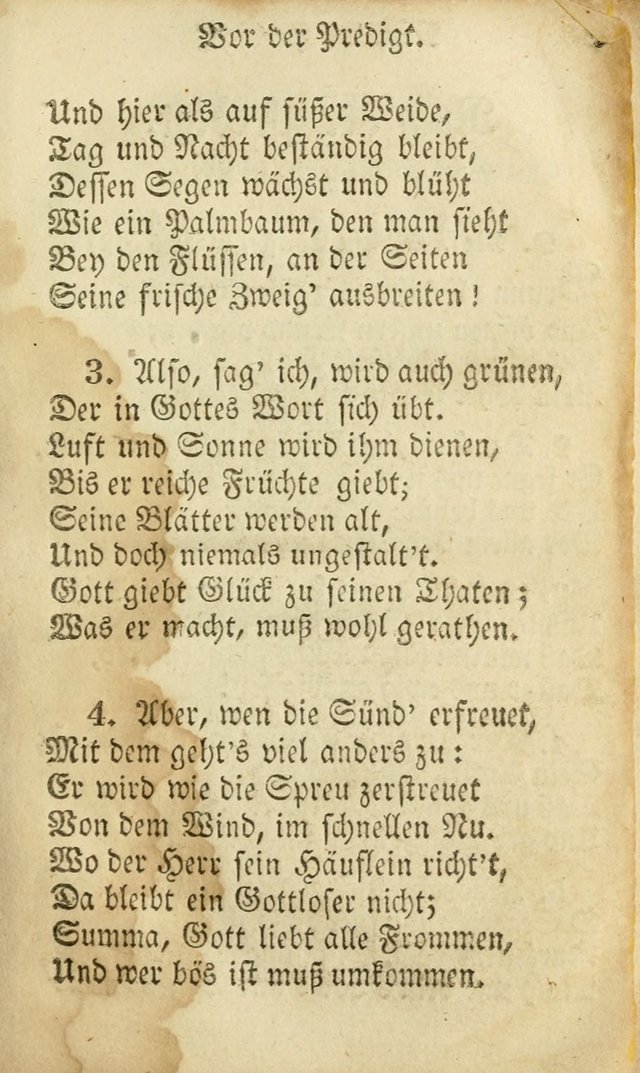 Vor der Predigt.
Und hier als auf süßer Weide,
Tag und Nacht beständig bleibt,
Dessen Segen wächst und blüht
Wie ein Palmbaum, den man sieht
Bey den Flüssen, an der Seiten
Seine frische Zweig' ausbreiten!
3. Also, sag' ich, wird auch grünen,
Der in Gottes Wort sich übt.
Luft und Sonne wird ihm dienen,
Bis er reiche Früchte giebt;
Seine Blätter werden alt,
Und doch niemals ungestalt't.
Gott giebt Glück zu seinen Thaten;
Was er macht, muß wohl gerathen.
4. Aber, wen die Sünd' erfreuet,
Mit dem geht's viel anders zu:
Er wird wie die Spreu zerstreuet
Von dem Wind, im schnellen Nu.
Wo der Herr sein Häuflein richt't,
Da bleibt ein Gottloser nicht;
Summa, Gott liebt alle Frommen,
Und wer bös ist muß umkommen.